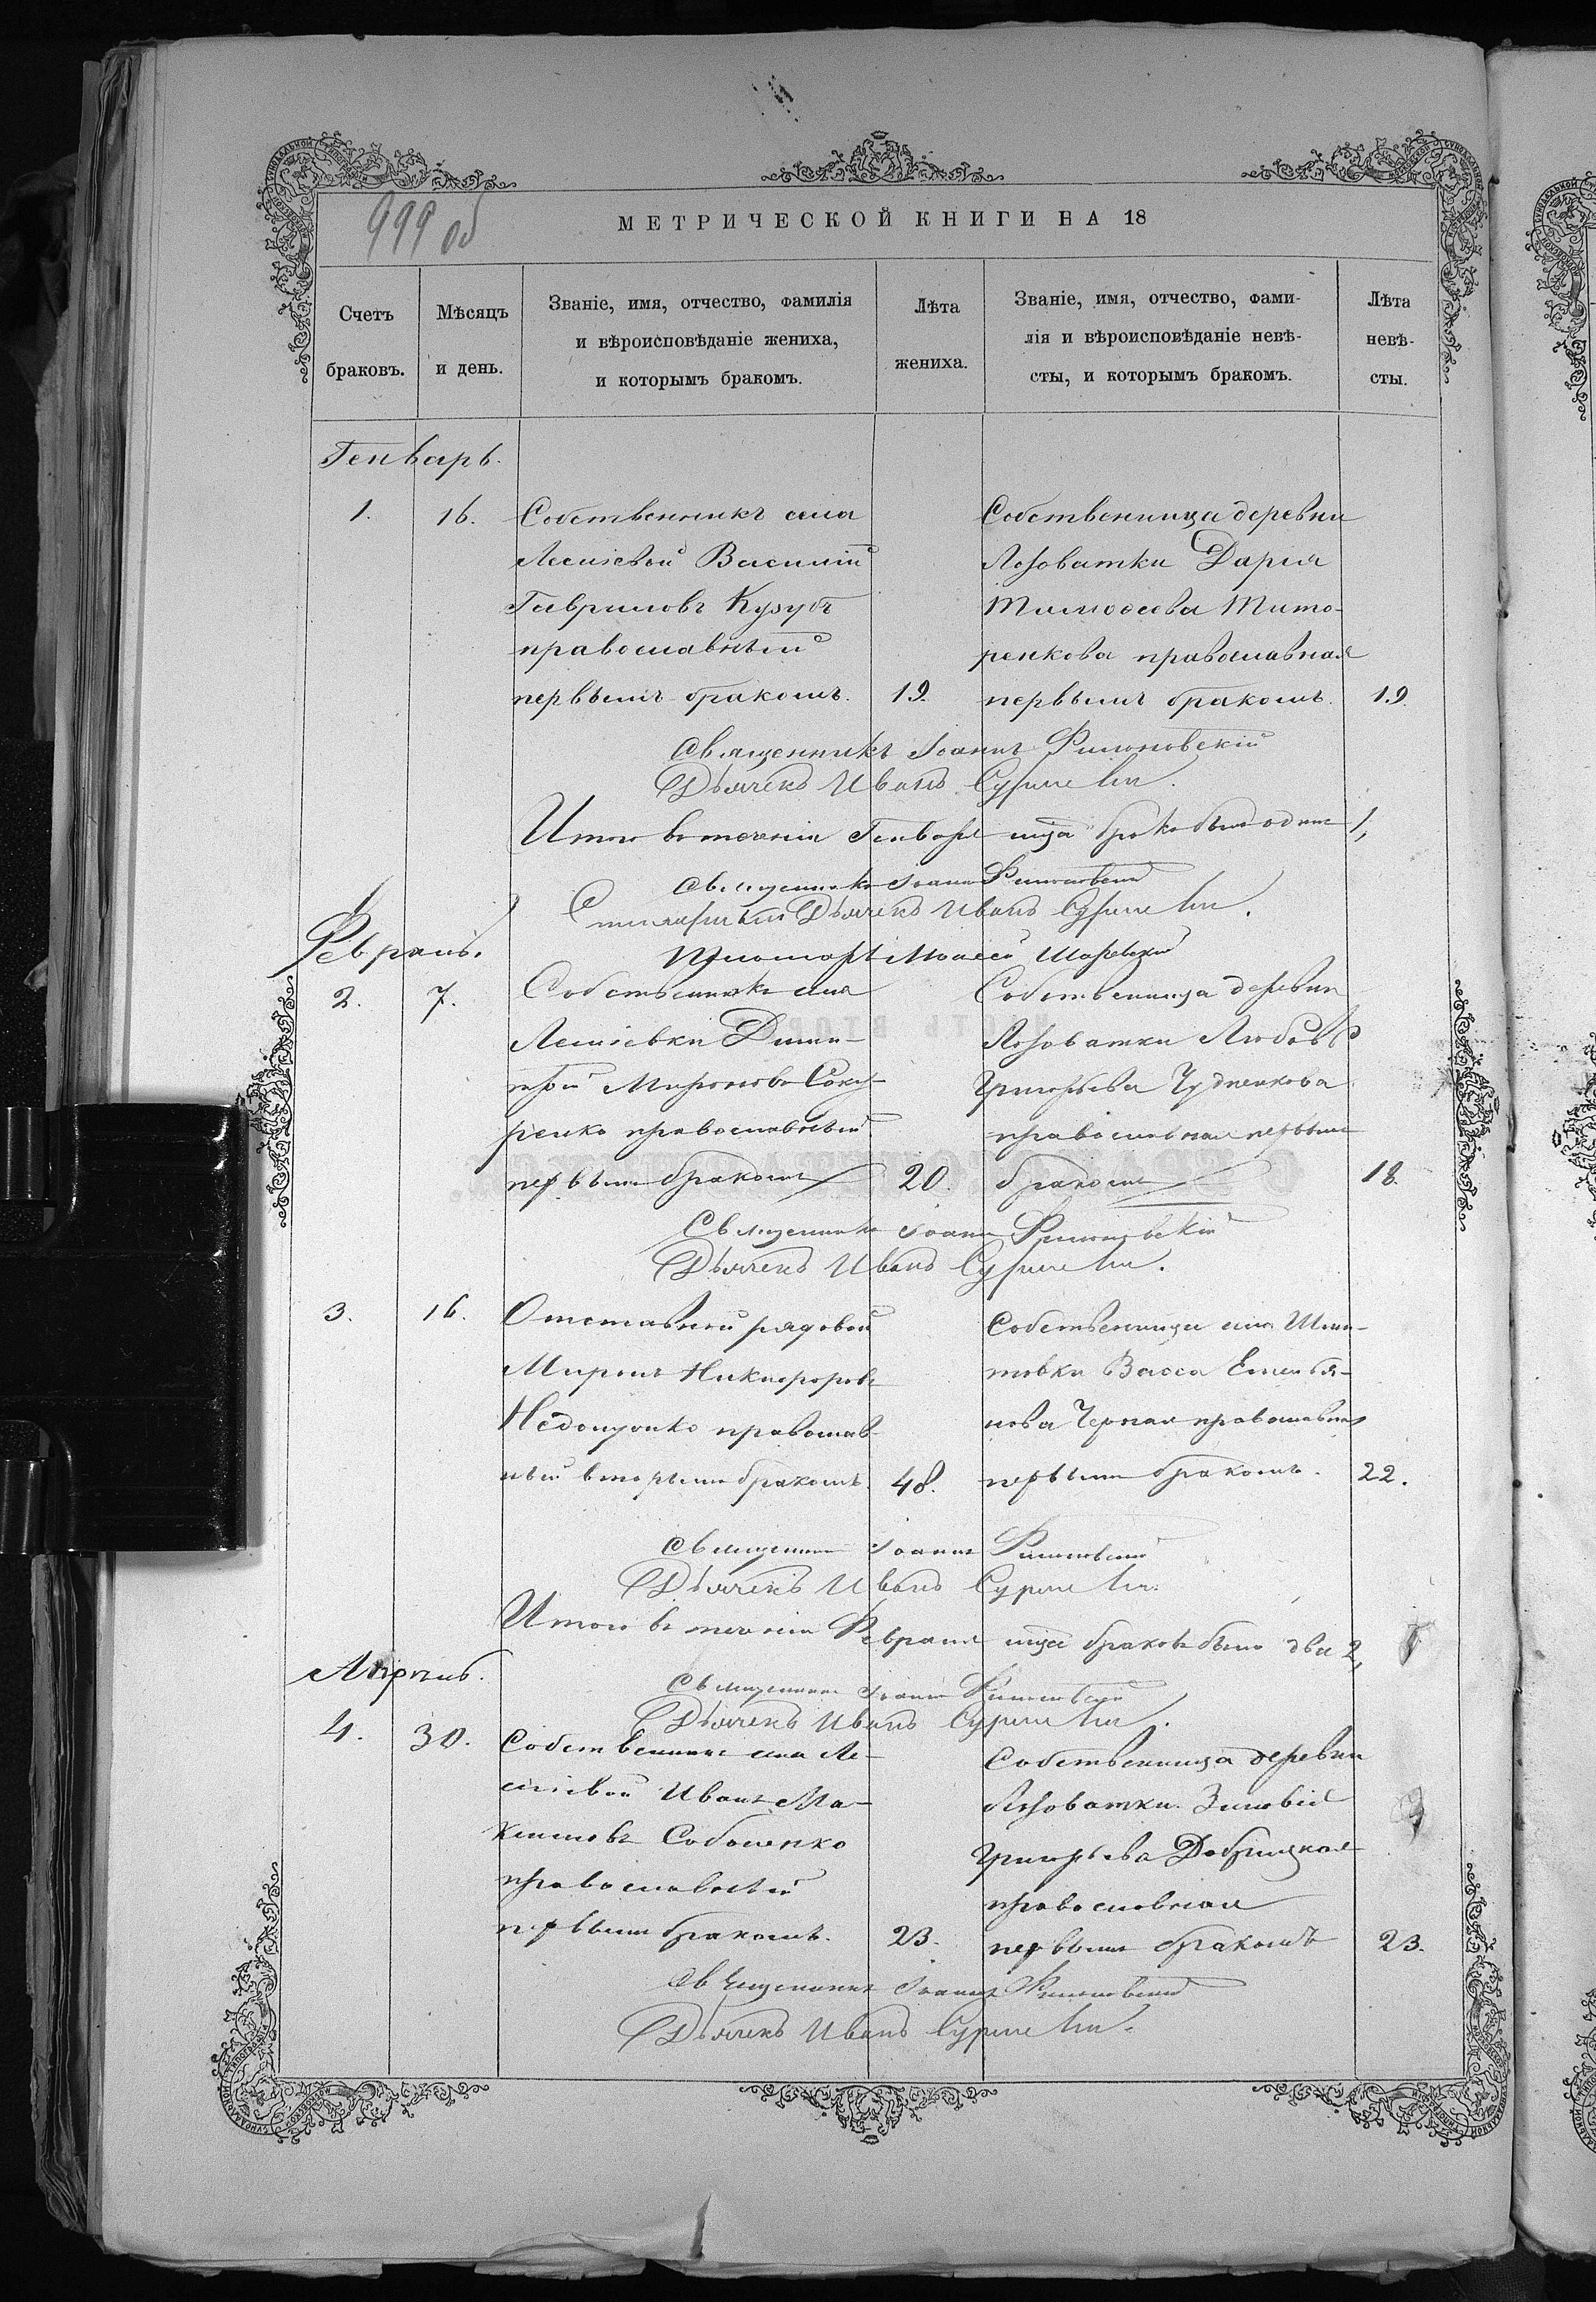 999 об
МЕТРИЧЕСКОЙ КНИГИ НА 18
Счетъ
браковъ.
Мѣсяцъ
и день.
Званіе, имя, отчество, фамилія
и вѣроисповѣданіе жениха,
и которымъ бракомъ.
Лѣта
жениха.
Званіе, имя, отчество, фами-
лія и вѣроисповѣданіе невѣ-
сты, и которымъ бракомъ.
Лѣта
невѣ-
сты.
Генварь.
1.
16.
Собственникъ села
Василій
Гавриловъ Кузубъ
православный
первымъ бракомъ.
19.
Собственница деревни
Лозоватки Дарія
Тимоѳеева Тито-
ренкова православная
первымъ бракомъ.
19.
Священникъ Іоаннъ
Дьячекъ Иванъ
Итого въ теченіи Генваря мца браковъ былъ одинъ 1,
Священникъ Іоаннъ
Дьячекъ Иванъ
Февраль.
2.
7.
Собственникъ села
Дими-
трій Мироновъ Соку-
ренко православный
первымъ бракомъ
20.
Собственница деревни
Лозоватки Любовь
Григорьева Чудненкова
православная первымъ
бракомъ
18.
Священникъ Іоаннъ
Дьячекъ Иванъ
3.
16.
Отставной рядовой
Миронъ Никифоровъ
православ-
ный вторымъ бракомъ.
48.
Собственница села
товки Васса Емелья-
нова Черная православная
первымъ бракомъ.
22.
Священникъ Іоаннъ
Дьячекъ Иванъ
Итого въ теченіи Февраля мца браковъ было два 2,
Священникъ Іоаннъ
Дьячекъ Иванъ
Апрѣль.
4.
30.
Собственникъ села Ле-
Иванъ Ма-
ксимовъ Соболенко
православный
первымъ бракомъ.
23.
Собственница деревни
Лозоватки Зиновія
Григорьева
православная
первымъ бракомъ
23.
Священникъ Іоаннъ
Дьячекъ Иванъ